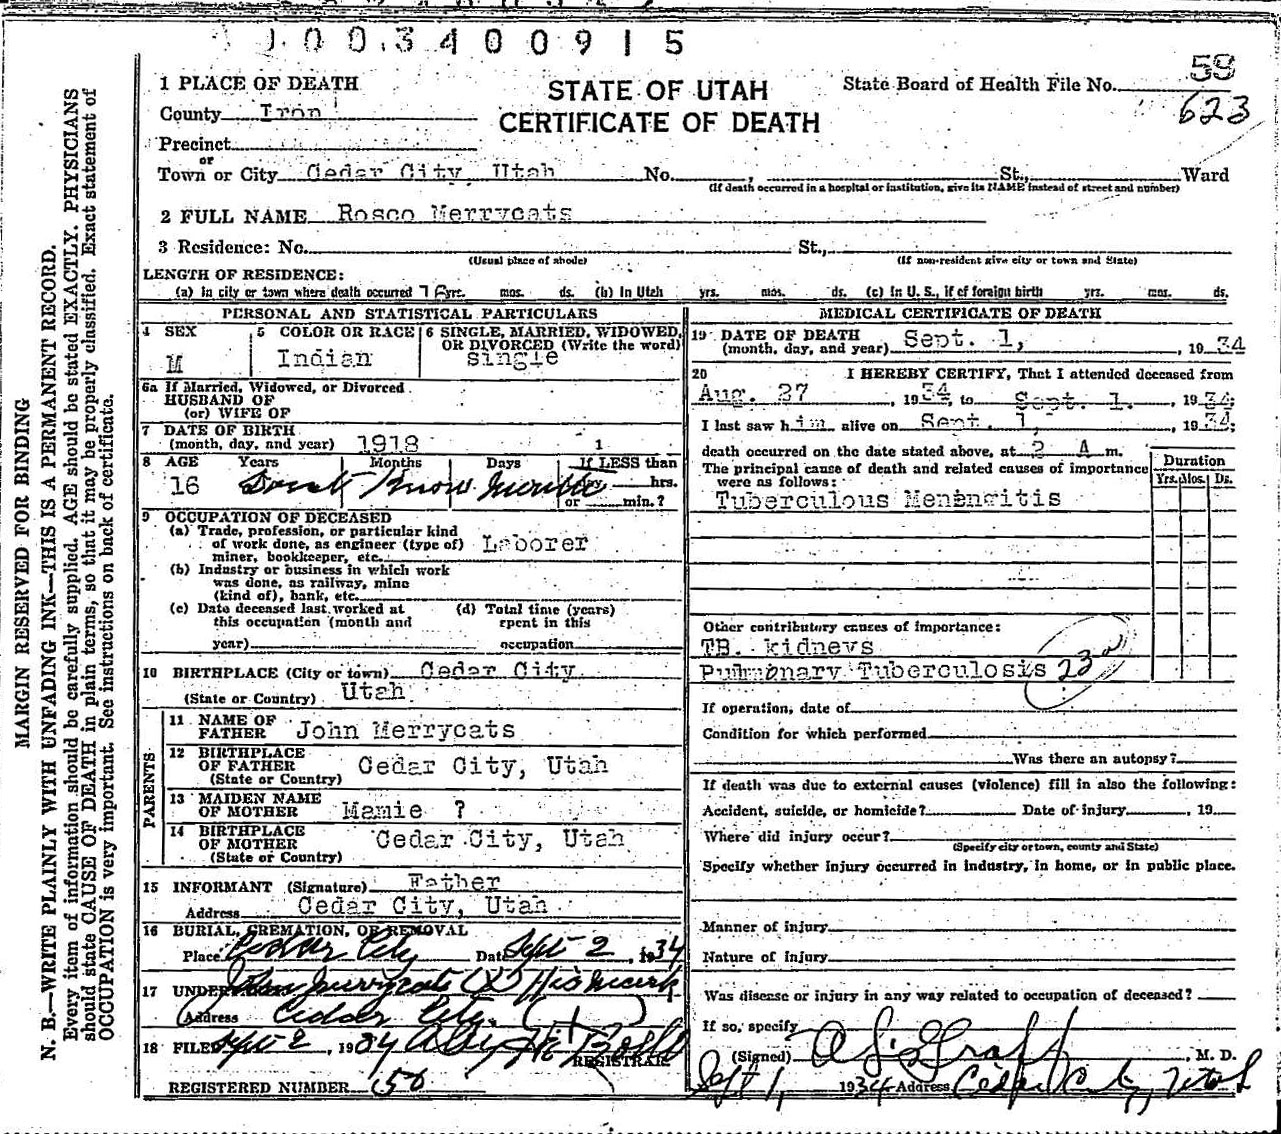 0003400915
1 PLACE OF DEATH
STATE OF UTAH
CERTIFICATE OF DEATH
State Board of Health File No. 59
623
County Iron
Precinct
or
Town or City Cedar City, Utah No. , St., Ward
(If death occurred in a hospital or institution, give its NAME instead of street and number)
2 FULL NAME Rosco Merrycats
3 Residence: No. St.,
(Usual place of abode) (If non-resident give city or town and State)
LENGTH OF RESIDENCE:
(a) In city or town where death occurred yrs. mos. ds. (b) In Utah yrs. mos. ds. (c) In U. S., if of foreign birth yrs. mos. ds.
PERSONAL AND STATISTICAL PARTICULARS
4 SEX M
5 COLOR OR RACE Indian
6 SINGLE, MARRIED, WIDOWED,
OR DIVORCED (Write the word)
single
6a If Married, Widowed, or Divorced
HUSBAND OF
(or) WIFE OF
7 DATE OF BIRTH
(month, day, and year) 1918 1
8 AGE Years Months Days If LESS than
16 Dont Know Months hrs.
or min.?
9 OCCUPATION OF DECEASED
(a) Trade, profession, or particular kind
of work done, as engineer (type of)
miner, bookkeeper, etc. Laborer
(b) Industry or business in which work
was done, as railway, mine
(kind of), bank, etc.
(c) Date deceased last worked at
this occupation (month and
year)
(d) Total time (years)
spent in this
occupation
10 BIRTHPLACE (City or town) Cedar City
(State or Country) Utah
PARENTS
11 NAME OF
FATHER John Merrycats
12 BIRTHPLACE
OF FATHER Cedar City, Utah
(State or Country)
13 MAIDEN NAME
OF MOTHER Mamie ?
14 BIRTHPLACE
OF MOTHER Cedar City, Utah
(State or Country)
15 INFORMANT (Signature) Father
Address Cedar City, Utah
16 BURIAL, CREMATION, OR REMOVAL
Place Cedar City Date Sept 2, 1934
17 UNDERTAKER John Merrycats (X) His Mark
Address Cedar City (+)
18 FILED Sept 2, 1934
REGISTRAR
REGISTERED NUMBER 50
MEDICAL CERTIFICATE OF DEATH
19 DATE OF DEATH
(month, day, and year) Sept. 1, , 1934
20 I HEREBY CERTIFY, That I attended deceased from
Aug. 27 , 1934, to Sept. 1. , 1934;
I last saw him alive on Sept. 1, , 1934;
death occurred on the date stated above, at 2 A m.
The principal cause of death and related causes of importance
were as follows:
Duration
Yrs. Mos. Ds.
Tuberculous Meningitis
Other contributory causes of importance:
TB. kidneys
Pulmonary Tuberculosis 23a
If operation, date of
Condition for which performed
Was there an autopsy?
If death was due to external causes (violence) fill in also the following:
Accident, suicide, or homicide? Date of injury , 19
Where did injury occur?
(Specify city or town, county and State)
Specify whether injury occurred in industry, in home, or in public place.
Manner of injury
Nature of injury
Was disease or injury in any way related to occupation of deceased?
If so, specify
(Signed) A L Graff , M. D.
Sept 1, 1934 Address Cedar City, Utah
MARGIN RESERVED FOR BINDING
N. B.—WRITE PLAINLY WITH UNFADING INK—THIS IS A PERMANENT RECORD.
Every item of information should be carefully supplied. AGE should be stated EXACTLY. PHYSICIANS
should state CAUSE OF DEATH in plain terms, so that it may be properly classified. Exact statement of
OCCUPATION is very important. See instructions on back of certificate.